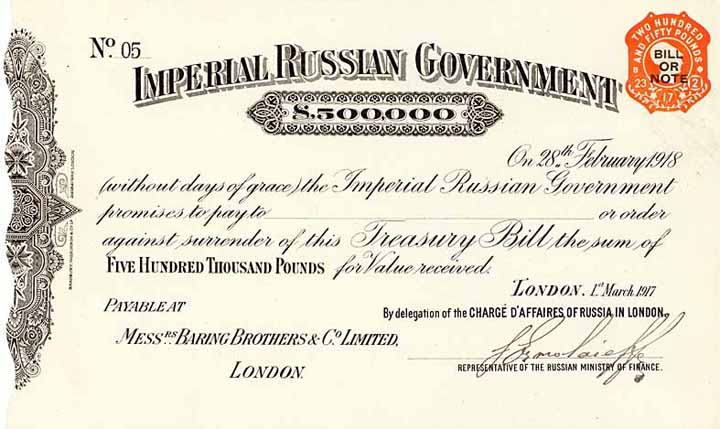 Nº 05
TWO HUNDRED
AND FIFTY POUNDS
BILL
OR
NOTE
23 2
17
IMPERIAL RUSSIAN GOVERNMENT
£.500,000
On 28th February 1918
(without days of grace) the Imperial Russian Government
promises to pay to or order
against surrender of this Treasury Bill the sum of
FIVE HUNDRED THOUSAND POUNDS for Value received.
LONDON. 1st March 1917
PAYABLE AT
By delegation of the CHARGÉ D'AFFAIRES OF RUSSIA IN LONDON.
MESSRS BARING BROTHERS & Co LIMITED,
LONDON.
REPRESENTATIVE OF THE RUSSIAN MINISTRY OF FINANCE.